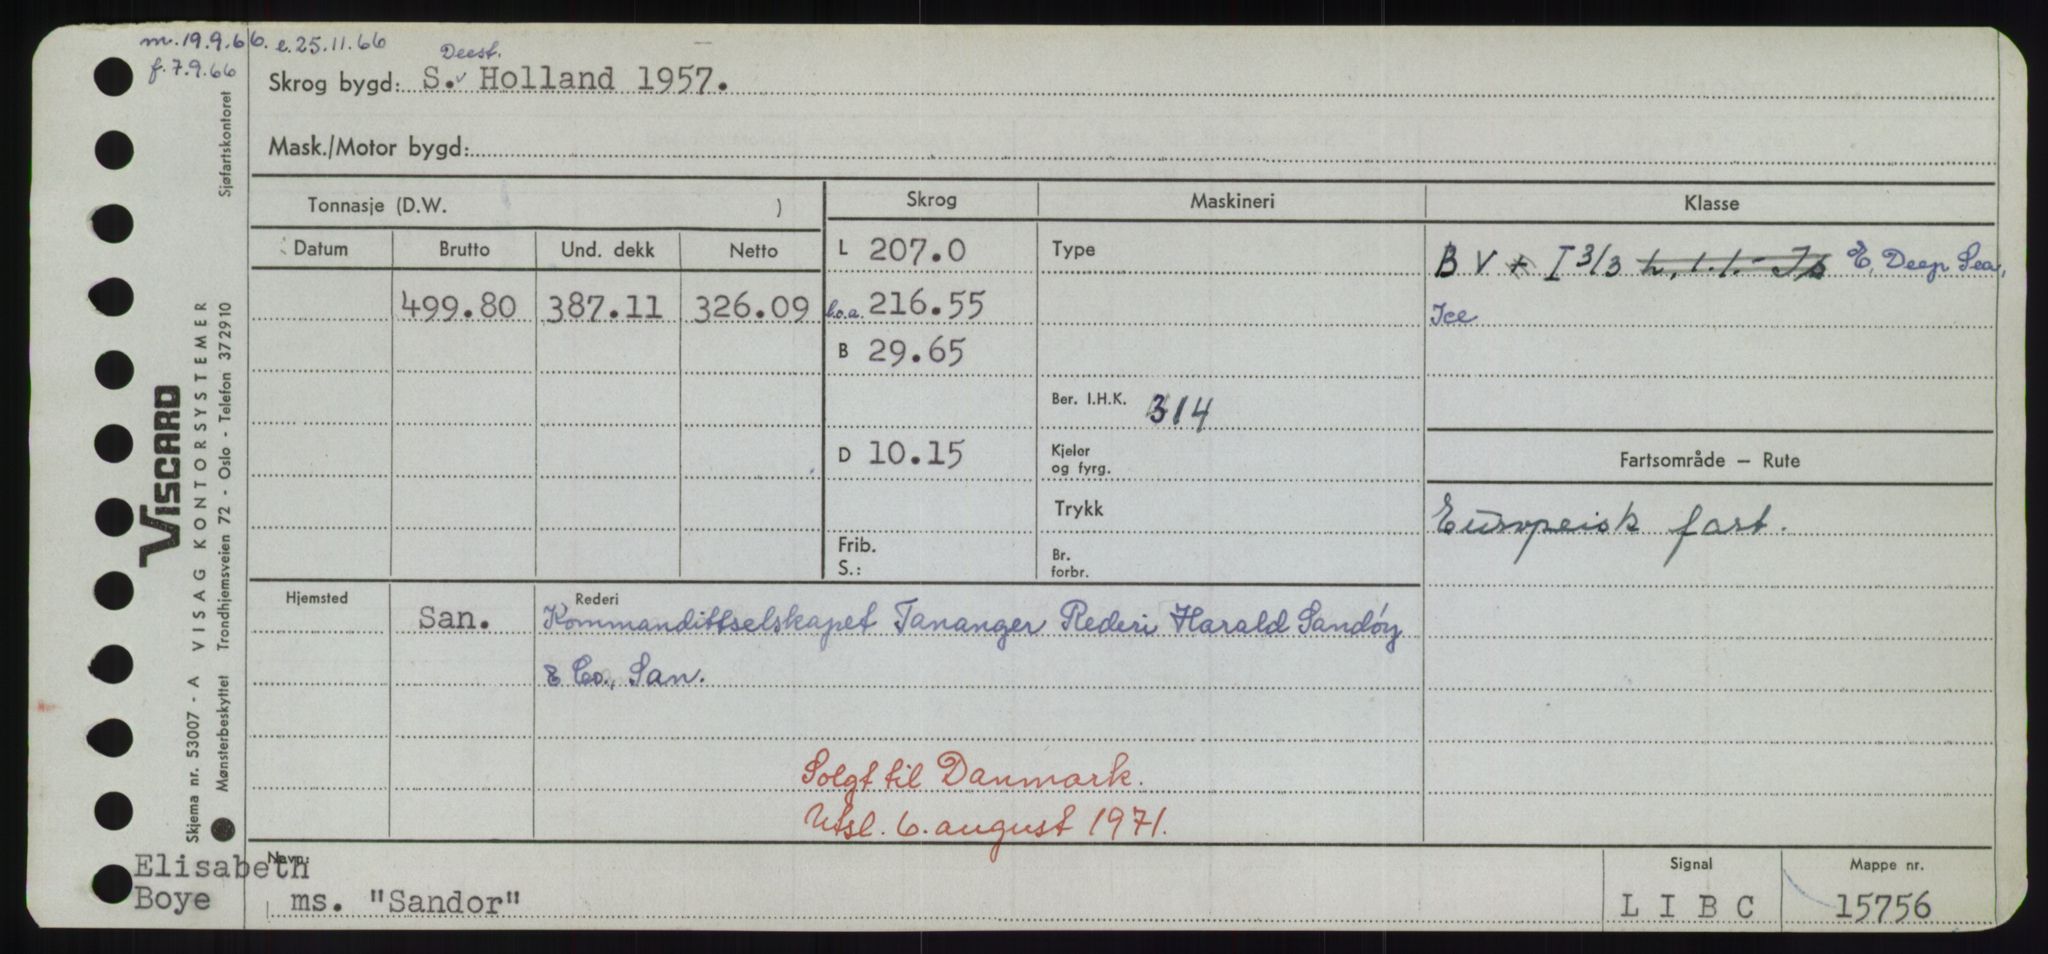 m.19.9.66. e.25.11.66
f.7.9.66
Deest.
Skrog bygd: S.v Holland 1957.
Mask./Motor bygd:
Tonnasje (D.W. )
Skrog
Maskineri
Klasse
Datum Brutto Und. dekk Netto
L 207.0
Type
B V + I 3/3 h. l. l. - Is Æ, Deep Sea,
499.80 387.11 326.09
l.o.a. 216.55
Ice
B 29.65
Ber. I.H.K. 314
D 10.15
Kjeler
og fyrg.
Fartsområde – Rute
Trykk
Europeisk fart.
Frib.
S.:
Br.
forbr.
Hjemsted San.
Rederi
Kommandittselskapet Tananger Rederi Harald Sandøy
& Co., San.
Solgt til Danmark.
Utsl. 6. august 1971.
Navn:
Elisabeth
Boye
ms. "Sandor"
Signal
L I B C
Mappe nr.
15756
VISCARD
Skjema nr. 53007 - A VISAG KONTORSYSTEMER
Mønsterbeskyttet Trondhjemsveien 72 - Oslo - Telefon 37 29 10 Sjøfartskontoret